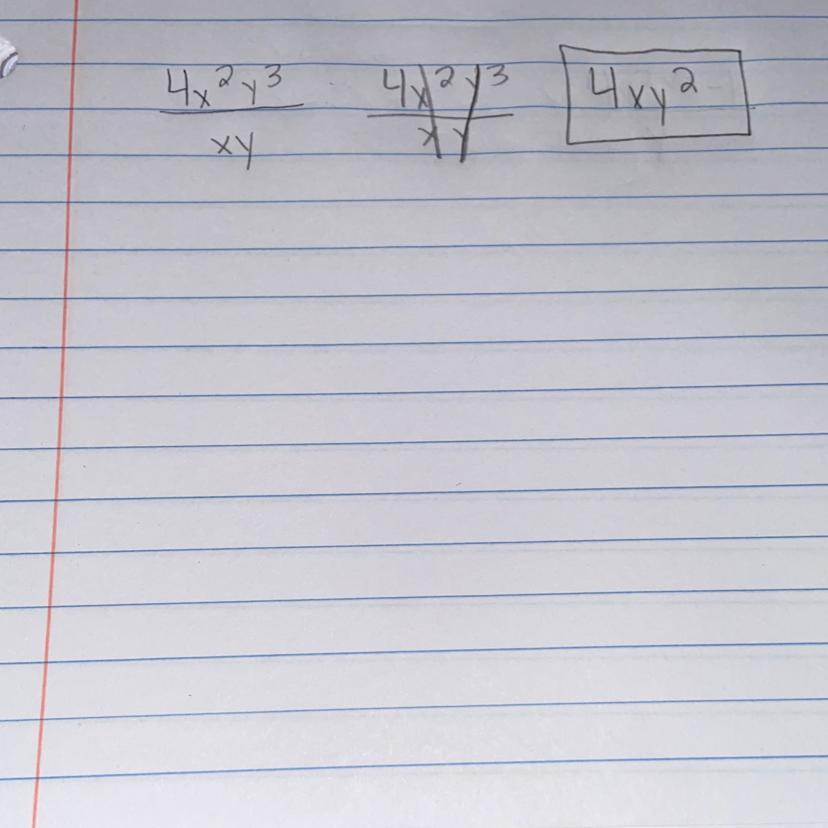 4x²y³ / xy    4x²y³ / xy    4xy²